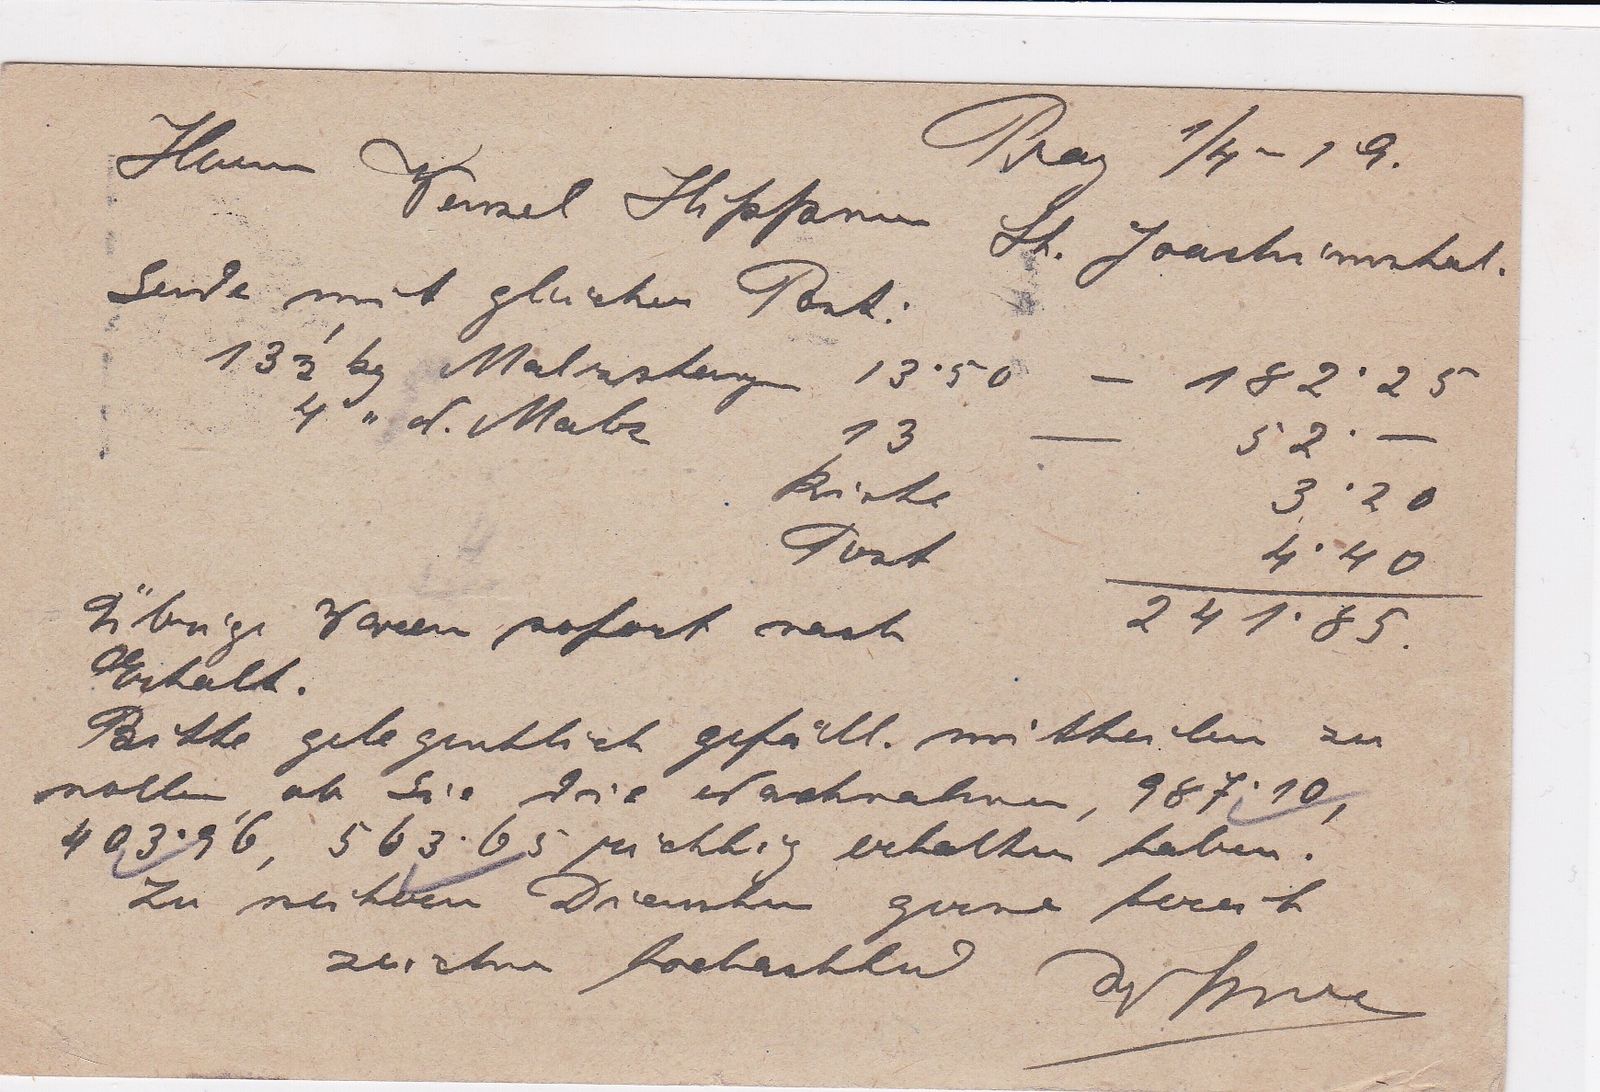 Prag 1/4 - 19.
Herrn Wenzel Hippmann St. Joachimsthal.
Sende mit gleicher Post:
13½ kg Malzstangen 13·50 — 182·25
4 " d. Malz 13 — 52·—
Kiste 3·20
Post 4·40
241·85.
Übrige Waren sofort nach
Erhalt.
Bitte gelegentlich gefäll. mittheilen zu
wollen, ob Sie die Nachnahmen, 987·10,
403·96, 563·65 richtig erhalten haben.
Zu weiteren Diensten gerne bereit
zeichne hochachtend